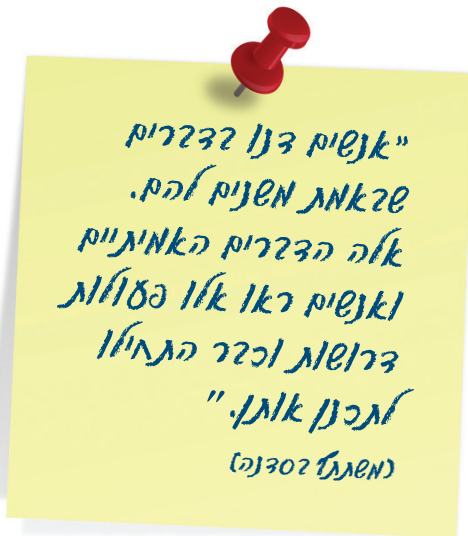 "אנשים דנו בדברים
שבאמת משנים להם.
אלה הדברים האמיתיים
ואנשים ראו אלו פעולות
דרושות וכבר התחילו
לתכנן אותן."
(משתתף בסדנה)